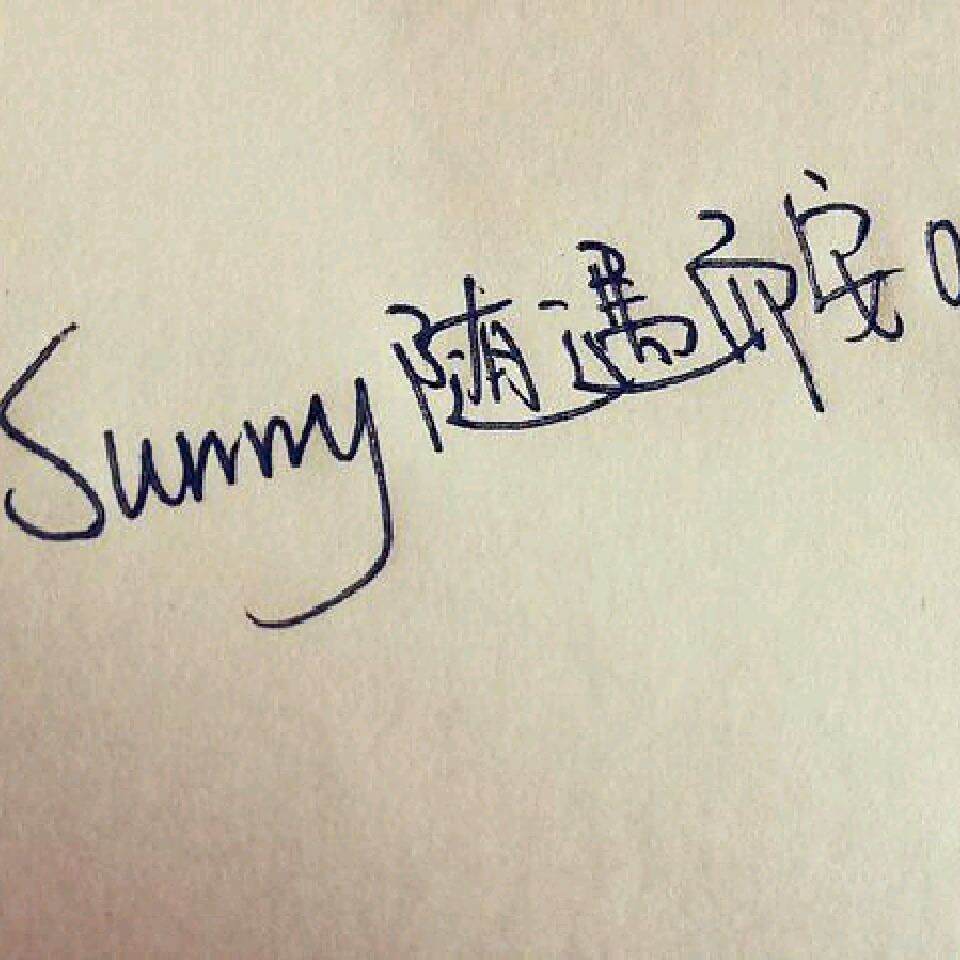 Sunny随遇而安